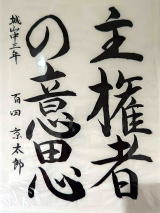 主権者
の意思
城山中三年
百田京太郎